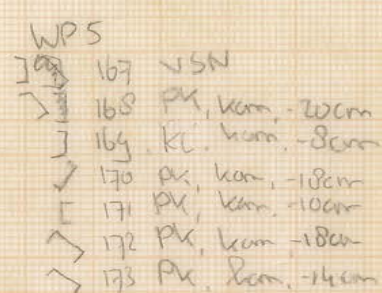 WP5
167 VSN
168 PK, kam, -20cm
169. KL. kam, -8cm
170 PK, kam, -18cm
171 PK, kam, -10cm
172 PK, kam -18cm
173 PK, kam, -14cm